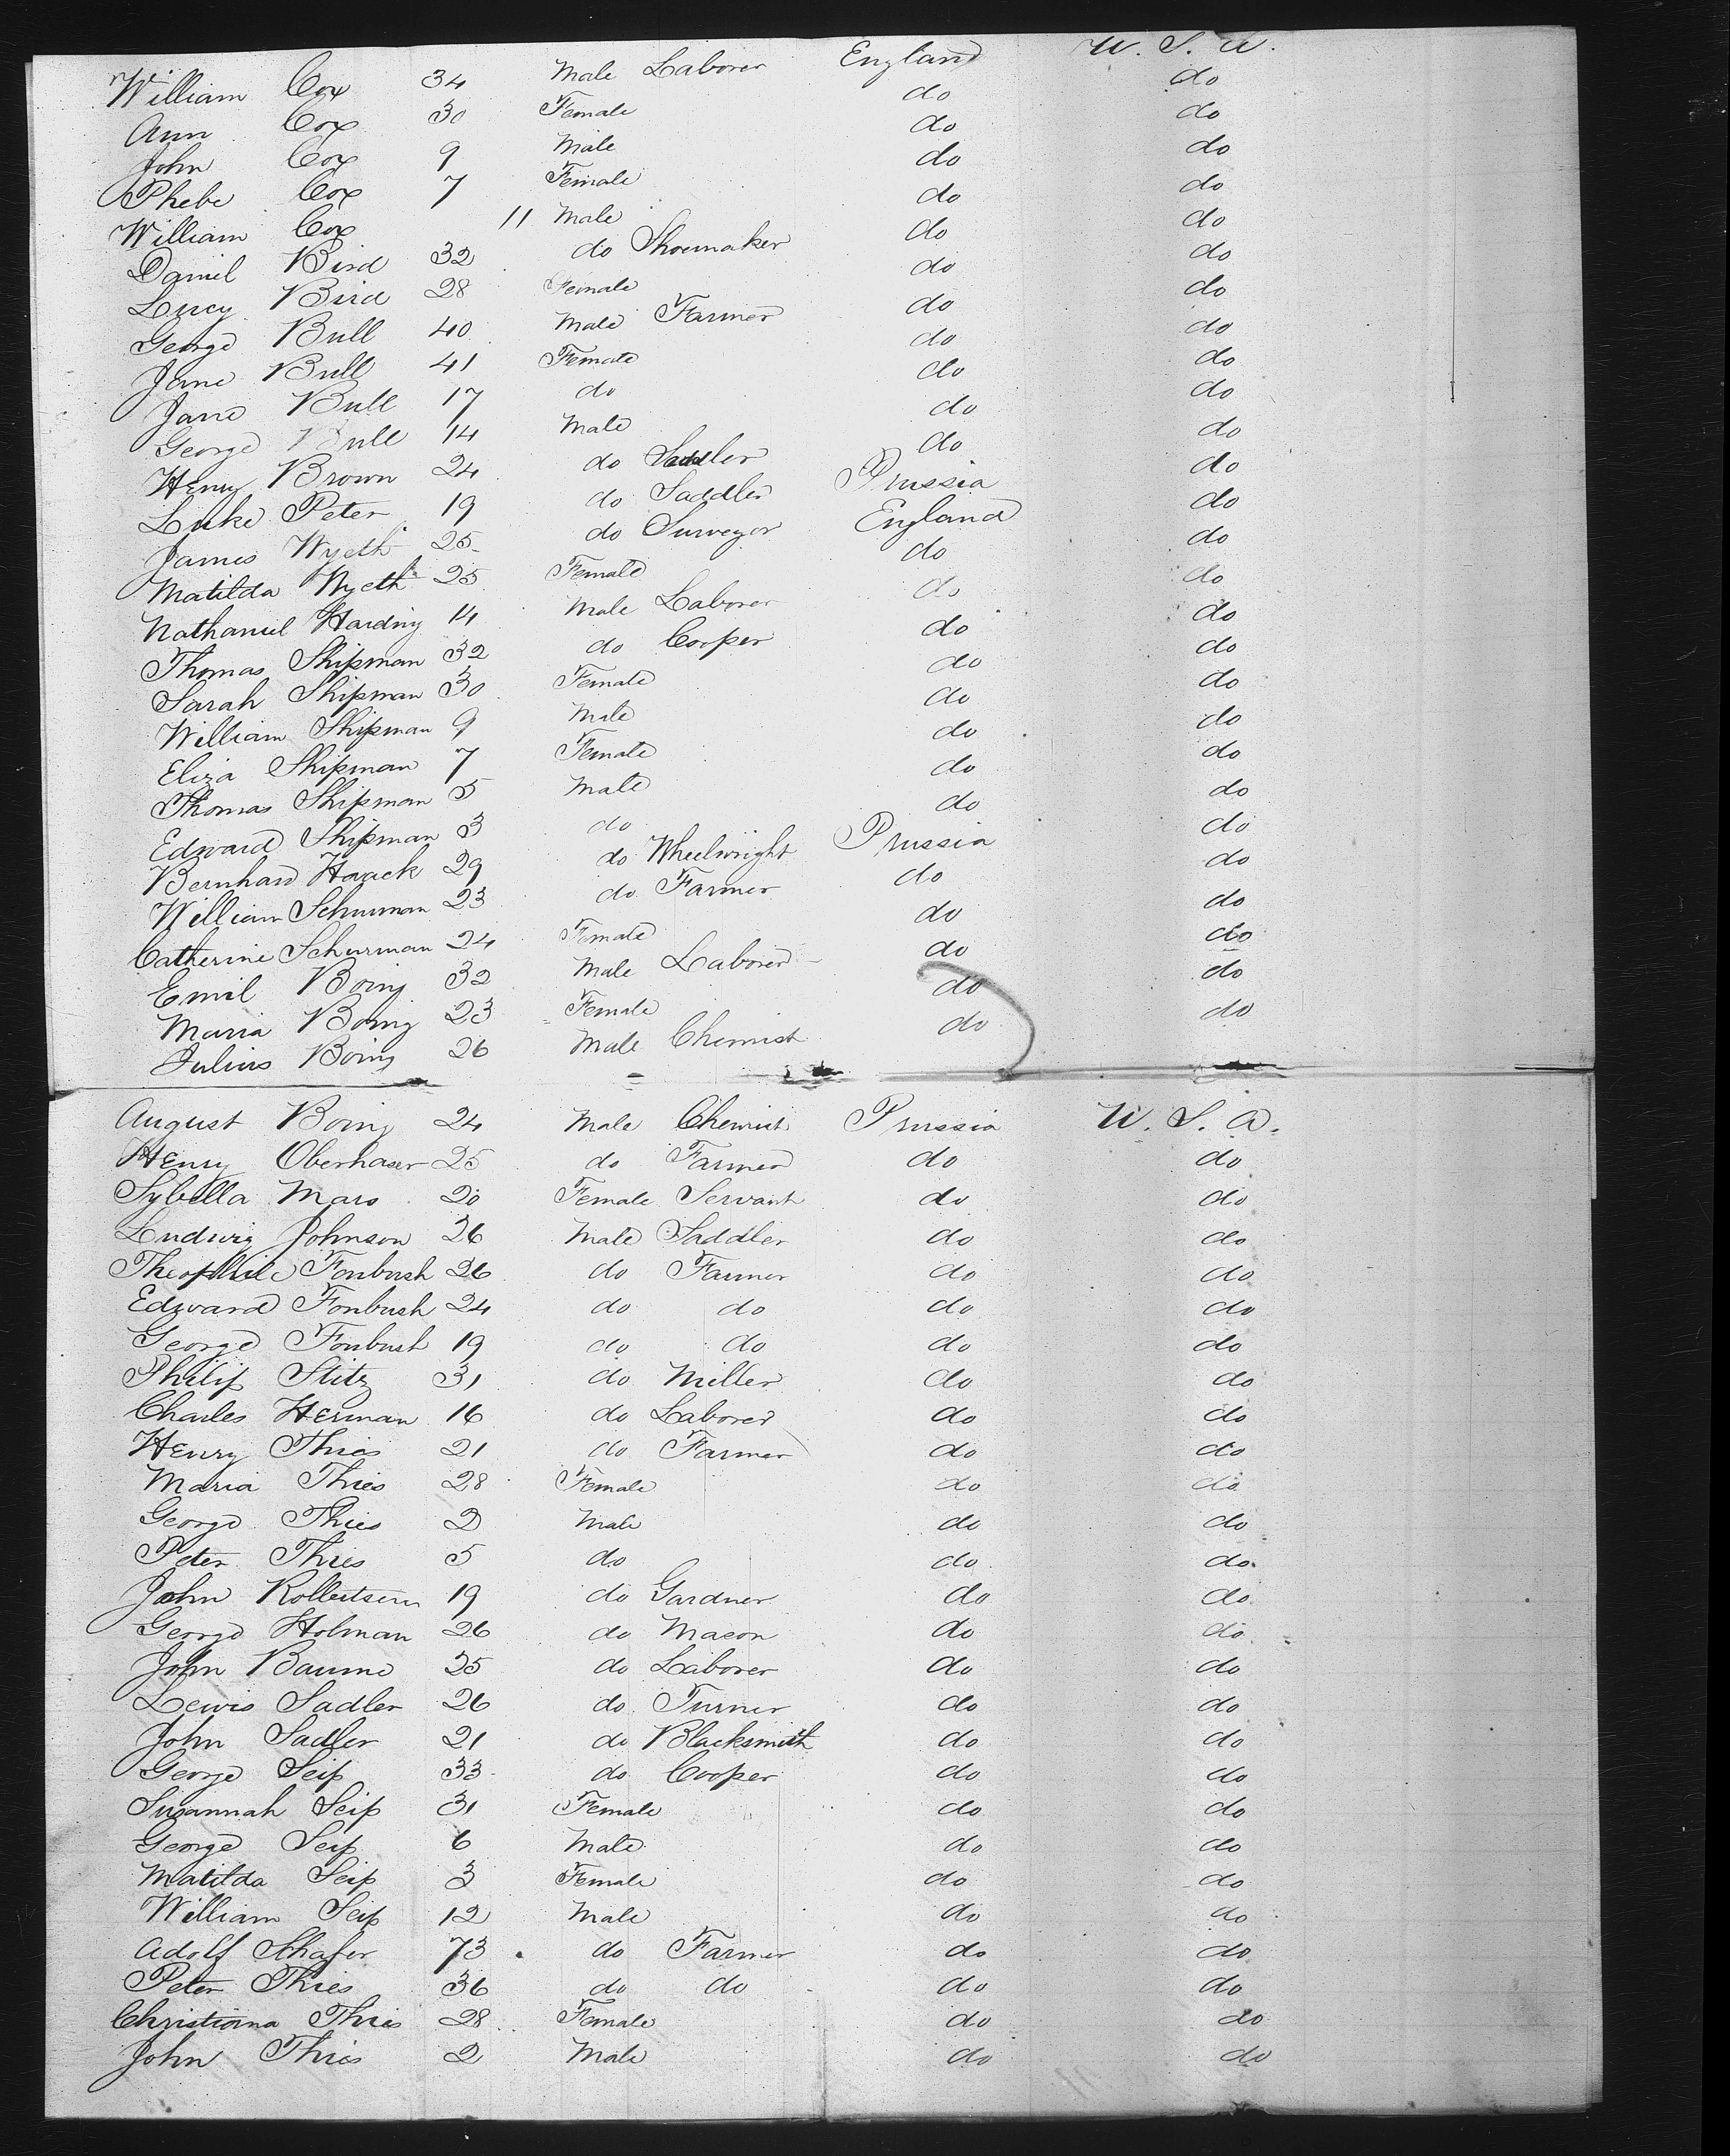 William Cox 34 Male Laborer England U. S. A.
Ann Cox 30 Female do do
John Cox 9 Male do do
Phebe Cox 7 Female do do
William Cox 11 Male do do
Daniel Bird 32 do Shoemaker do do
Lucy Bird 28 Female do do
George Bull 40 Male Farmer do do
Jane Bull 41 Female do do
Jane Bull 17 do do do
George Bull 14 Male do do
Henry Brown 24 do Saddler do do
Luke Peter 19 do Saddler Prussia do
James Wyeth 25 do Surveyor England do
Matilda Wyeth 25 Female do do
Nathaniel Harding 14 Male Laborer do do
Thomas Shipman 32 do Cooper do do
Sarah Shipman 30 Female do do
William Shipman 9 Male do do
Eliza Shipman 7 Female do do
Thomas Shipman 5 Male do do
Edward Shipman 3 do do do
Bernhard Haack 29 do Wheelwright Prussia do
William Schurman 23 do Farmer do do
Catherine Schurman 24 Female do do
Emil Boing 32 Male Laborer do do
Maria Boing 23 Female do do
Julius Boing 26 Male Chemist do do
August Boing 24 Male Chemist Prussia U. S. A.
Henry Oberhaser 25 do Farmer do do
Sybella Mars 20 Female Servant do do
Ludwig Johnson 26 Male Saddler do do
Theophile Fonbush 26 do Farmer do do
Edward Fonbush 24 do do do do
George Fonbush 19 do do do do
Philip Stitz 31 do Miller do do
Charles Herman 16 do Laborer do do
Henry Thies 21 do Farmer do do
Maria Thies 28 Female do do
George Thies 2 Male do do
Peter Thies 5 do do do
John 19 do Gardner do do
George Holman 26 do Mason do do
John Baume 25 do Laborer do do
Lewis Sadler 26 do Turner do do
John Sadler 21 do Blacksmith do do
George Seip 33 do Cooper do do
Susannah Seip 31 Female do do
George Seip 6 Male do do
Matilda Seip 3 Female do do
William Seip 12 Male do do
Adolf Schafer 73 do Farmer do do
Peter Thies 36 do do do do
Christiana Thies 28 Female do do
John Thies 2 Male do do